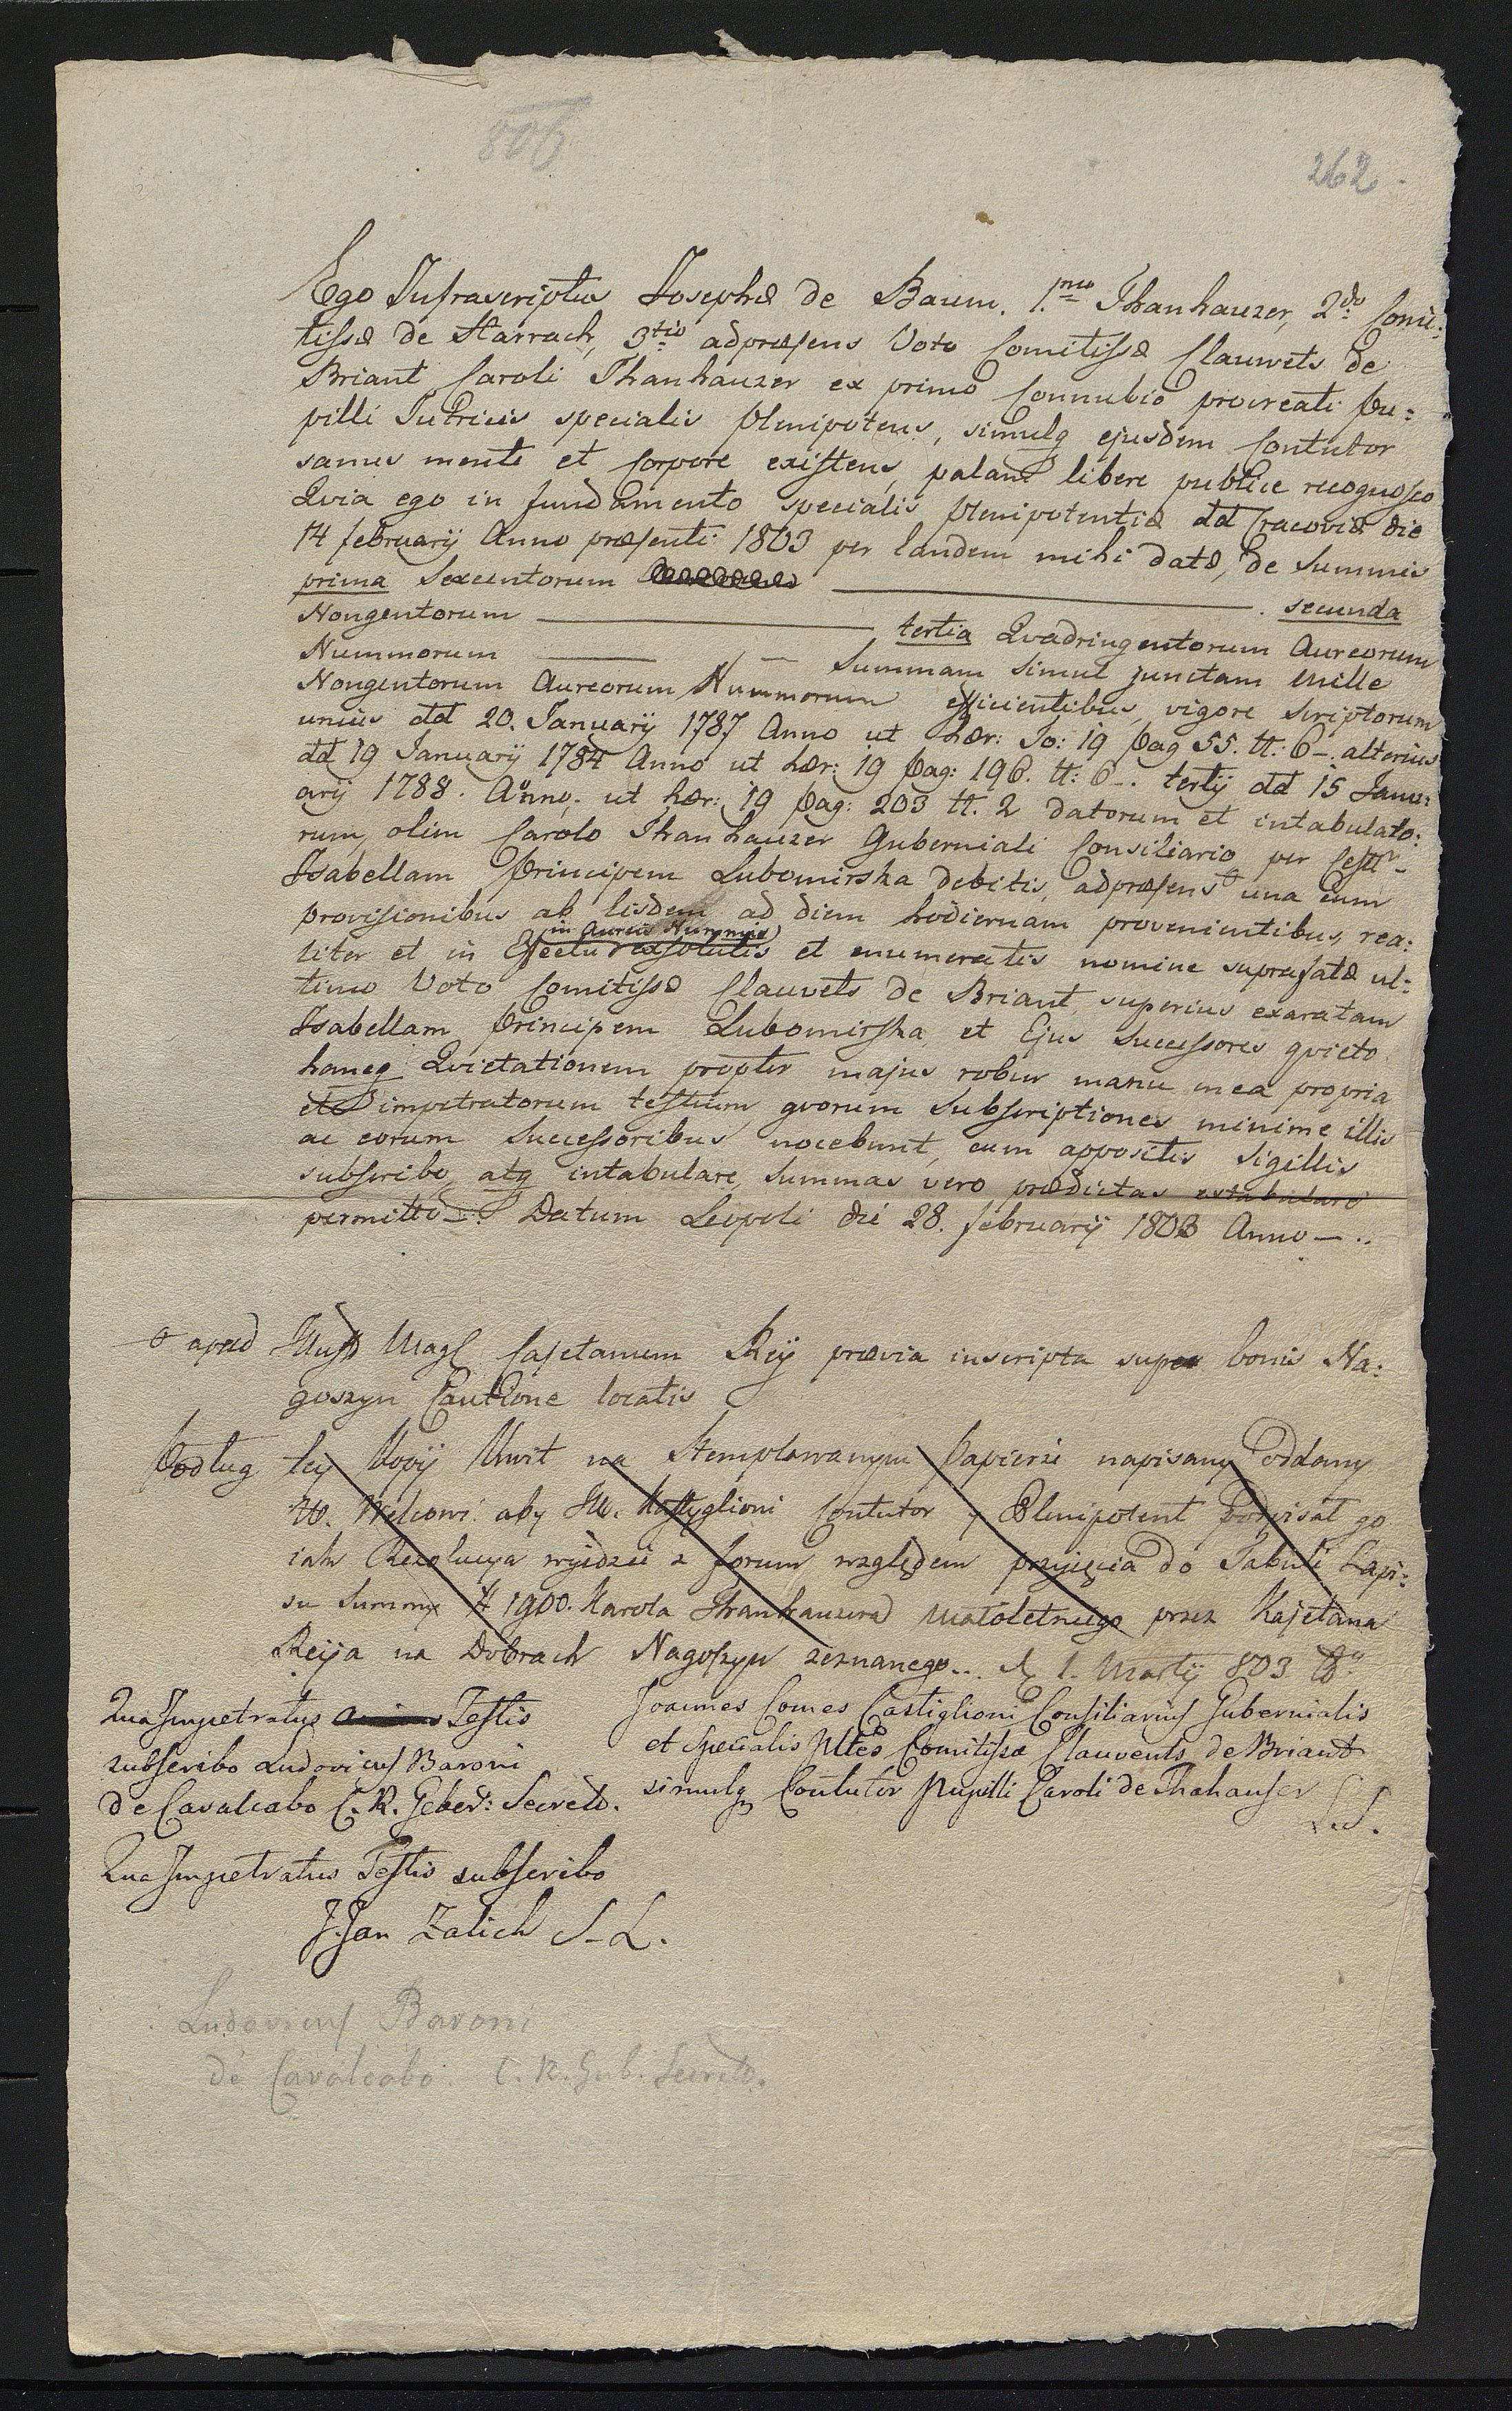 262
Ego Infrascriptus Josephæ de Baum. 1.mo Thanhauzer, 2do Comi:
tissæ de Harrach, 3tio adpræsens Voto Comitissæ Clauwets de
Briant Caroli Thanhauzer ex primo Connubio procreati Pu:
pilli Tutricis specialis Plenipotens, simulq ejusdem Contutor
sanus mente et Corpore existens, palam libere publice recognosco
Qvia ego in fundamento specialis Plenipotentiæ dd Cracoviæ die
14 februarij Anno præsenti 1803 per Eandem mihi datæ, de Summis
prima Sexcentorum secunda
Nongentorum tertia Qvadringentorum Aureorum
Nummorum Summam simul junctam Mille
Nongentorum Aureorum Nummorum efficientibus, vigore Scriptorum
unius dd 20. Januarij 1787 Anno ut hær: To: 19 Pag 55. tt: 6 -. alterius
dd 19 Januarij 1784 Anno ut hær: 19 Pag: 196. tt: 6 -. tertij dd 15 Janu:
arij 1788. Anno. ut hær: 19 Pag: 203 tt. 2 datorum et intabulato:
rum, olim Carolo Thanhauzer Guberniali Consiliario per Cels
Isabellam Principem Lubomirska debitis, adpræsens una cum
provisionibus ab Iisdem ad diem hodiernam provenientibus, rea:
(in Aureis Nummis)
liter et in Effectu exsolutis et enumeratis nomine suprafatæ ul:
timo Voto Comitissæ Clauvets de Briant, superius exaratam
Isabellam Principem Lubomirska et Ejus Successores qvieto
hancq Qvietationem propter majus robur manu mea propria
et impetratorum testium, qvorum Subscriptiones minime illis
ac eorum Successoribus nocebunt, cum appositis Sigillis
subscribo, atq intabulare, Summas vero prædictas extabulare
permitto. Datum Leopoli die 28. februarij 1803 Anno - ..
apud Illust Magf Cajetanum Rey prævia inscripta super bonis Na:
goszyn Cautione locatis
Podług tey Kopij Kwit na Stemplowanym Papierze napisany oddany
W. aby JW. Kastyglioni Contutor y Plenipotent podpisał go
iak Rezolucya wyidzie z forum względem przyięcia do Tabuli Zapi:
su Summy # 1900. Karola Thanhauzera Małoletniego przez Kajetana
Reija na Dobrach Nagoszyn zeznanego.. d 1. Martij 803
Qua Impetratus Testis
subscribo Ludovicus Baroni
de Cavalcabo C. R. Geber: Secret.
Joannes Comes Castiglioni Consiliarius Gubernialis
et specialis Pltes Comitissæ Clauvents de Briant
simulq Contutor Pupilli Caroli de Thahauser
L.S.
Qua Impetratus Testis subscribo
J. Jan Zalich S-L.
Ludovicus Baroni
de Cavalcabo. C. R. Gub. Secret.